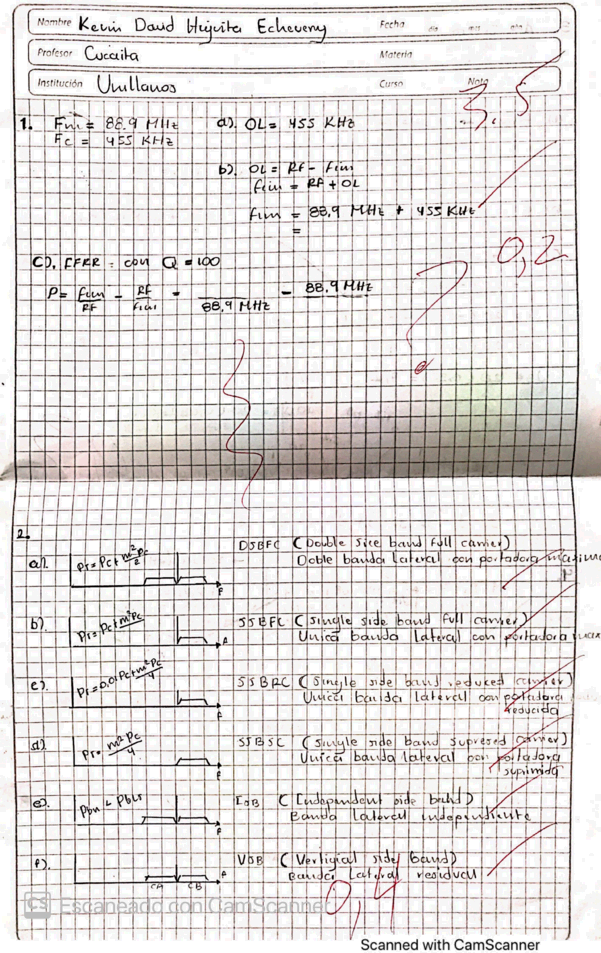 Nombre Kevin David Huguita Echeverry Fecha día mes año
Profesor Cucaita Materia
Institución Unillanos Curso Nota
3.5
1. Fm = 88.9 MHz a). OL = 455 KHz
Fc = 455 KHz
b). OL = RF - fim
fim = RF + OL
fim = 88,9 MHz + 455 KHz
=
0,2
C). FFRR = con Q = 100
P = fim/RF - RF/fim = /88,9 MHz - 88.9 MHz/
?
2.
a). PT = Pc + m²Pc/2 DSBFC (Double side band full carrier)
Doble banda lateral con portadora maxima
F
b). PT = Pc + m²Pc SSBFC (single side band full carrier)
Unica banda lateral con portadora max
F
c). PT = 0,01Pc + m²Pc/4 SSBRC (single side band reduced carrier)
Unica banda lateral con portadora
reducida
F
d). PT = m²Pc/4 SSBSC (single side band supresed carrier)
Unica banda lateral con portadora
suprimida
F
e). ISB (Independent side band)
Banda lateral independiente
F
f). VSB (Vertigial side band)
Banda lateral residual
F
CA CB
0,4
CS Escaneado con CamScanner
Scanned with CamScanner